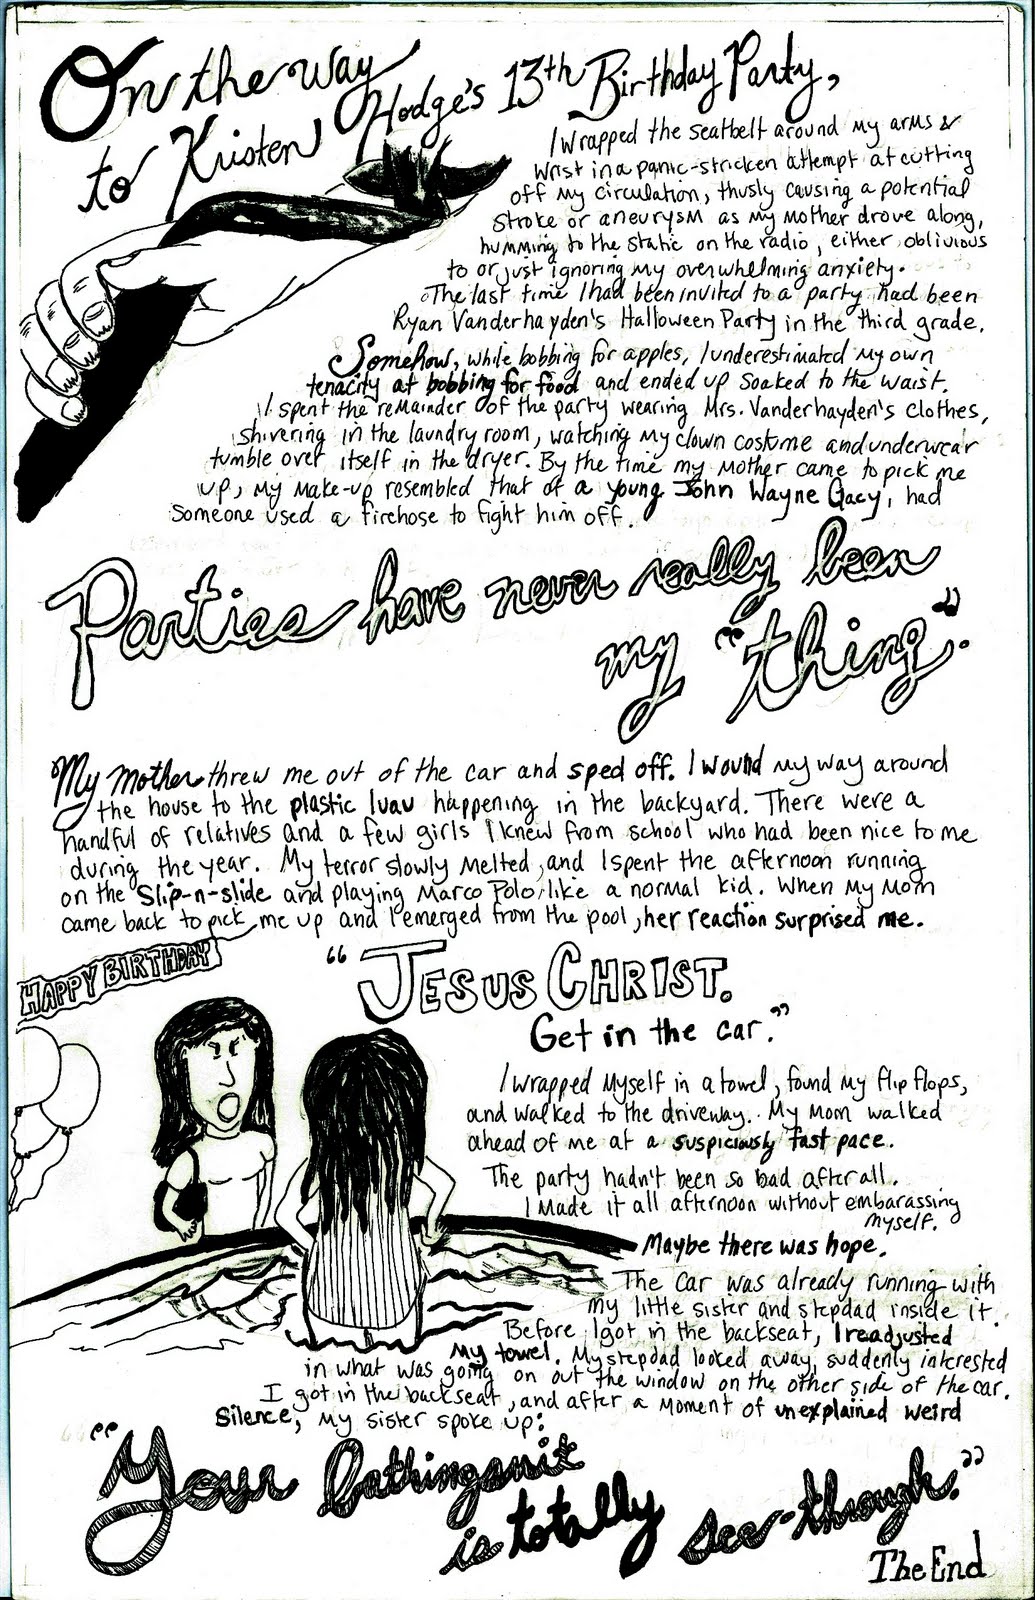 On the way
to Kristen Hodge's 13th Birthday Party,
I wrapped the seatbelt around my arms &
wrist in a panic-stricken attempt at cutting
off my circulation, thusly causing a potential
stroke or aneurysm as my mother drove along,
humming to the static on the radio, either oblivious
to or just ignoring my overwhelming anxiety.
The last time I had been invited to a party had been
Ryan Vanderhayden's Halloween Party in the third grade.
Somehow, while bobbing for apples, I underestimated my own
tenacity at bobbing for food and ended up soaked to the waist.
I spent the remainder of the party wearing Mrs. Vanderhayden's clothes,
shivering in the laundry room, watching my clown costume and underwear
tumble over itself in the dryer. By the time my mother came to pick me
up, my make-up resembled that of a young John Wayne Gacy, had
someone used a firehose to fight him off.
Parties have never really been
my "thing".
My mother threw me out of the car and sped off. I wound my way around
the house to the plastic luau happening in the backyard. There were a
handful of relatives and a few girls I knew from school who had been nice to me
during the year. My terror slowly melted, and I spent the afternoon running
on the Slip-n-slide and playing Marco Polo, like a normal kid. When my mom
came back to pick me up and I emerged from the pool, her reaction surprised me.
HAPPY BIRTHDAY
"JESUS CHRIST.
Get in the car."
I wrapped myself in a towel, found my flip flops,
and walked to the driveway. My mom walked
ahead of me at a suspiciously fast pace.
The party hadn't been so bad after all.
I made it all afternoon without embarassing
myself.
Maybe there was hope.
The car was already running with
my little sister and stepdad inside it.
Before I got in the backseat, I readjusted
my towel. My stepdad looked away, suddenly interested
in what was going on out the window on the other side of the car.
I got in the backseat, and after a moment of unexplained weird
silence, my sister spoke up:
"Your bathingsuit
is totally see-through."
The End